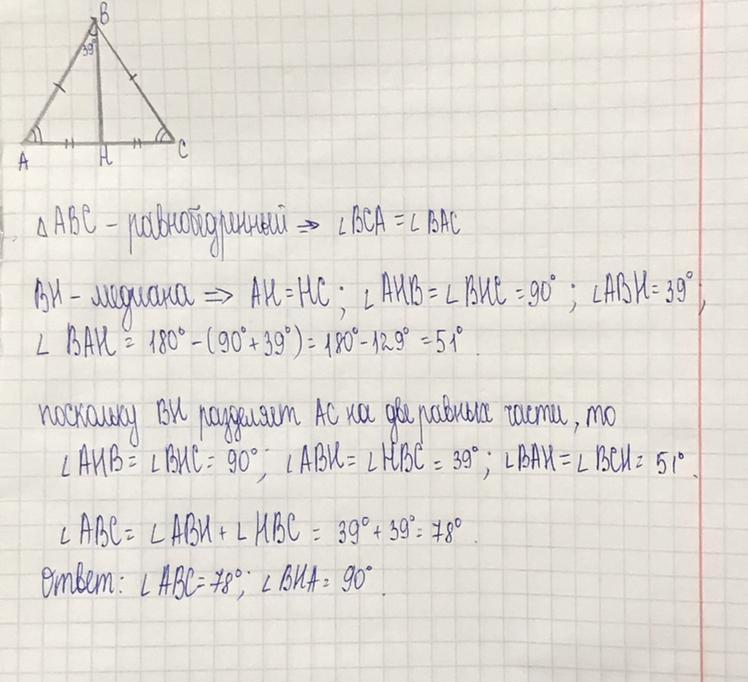 B
39°
A H C
△ABC - равнобедренный ⇒ ∠BCA = ∠BAC
BH - медиана ⇒ AH = HC; ∠AHB = ∠BHC = 90°; ∠ABH = 39°;
∠ BAH = 180° - (90° + 39°) = 180° - 129° = 51°.
поскольку BH разделяет AC на две равных части, то
∠AHB = ∠BHC = 90°; ∠ABH = ∠HBC = 39°; ∠BAH = ∠BCH = 51°.
∠ABC = ∠ABH + ∠HBC = 39° + 39° = 78°.
Ответ: ∠ABC = 78°; ∠BHA = 90°.